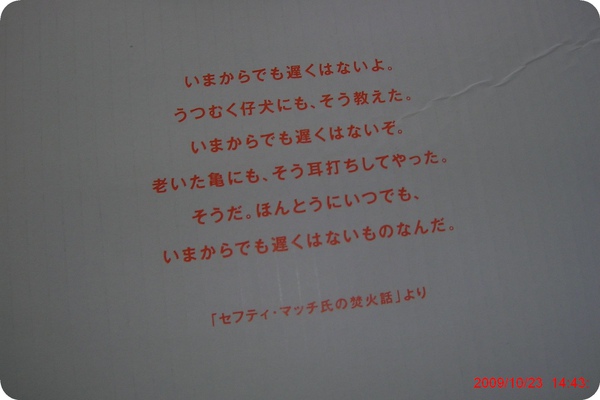 いまからでも遅くはないよ。
うつむく仔犬にも、そう教えた。
いまからでも遅くはないぞ。
老いた亀にも、そう耳打ちしてやった。
そうだ。ほんとうにいつでも、
いまからでも遅くはないものなんだ。
「セフティ・マッチ氏の焚火話」より
2009/10/23 14:43